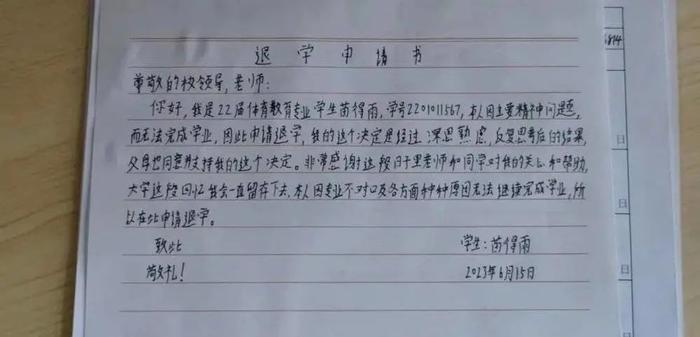 退学申请书
尊敬的校领导，老师：
你好，我是22届体育教育专业学生苗得雨，学号2201011567，本人因主要精神问题，
而无法完成学业，因此申请退学，我的这个决定是经过深思熟虑，反复思考后的结果，
父母也同意并支持我的这个决定。非常感谢这段日子里老师和同学对我的关心和帮助，
大学这段回忆我会一直留存下去。本人因专业不对口及各方面种种原因无法继续完成学业，所
以在此申请退学。
致此
敬礼！
学生：苗得雨
2023年6月15日
日
日
日